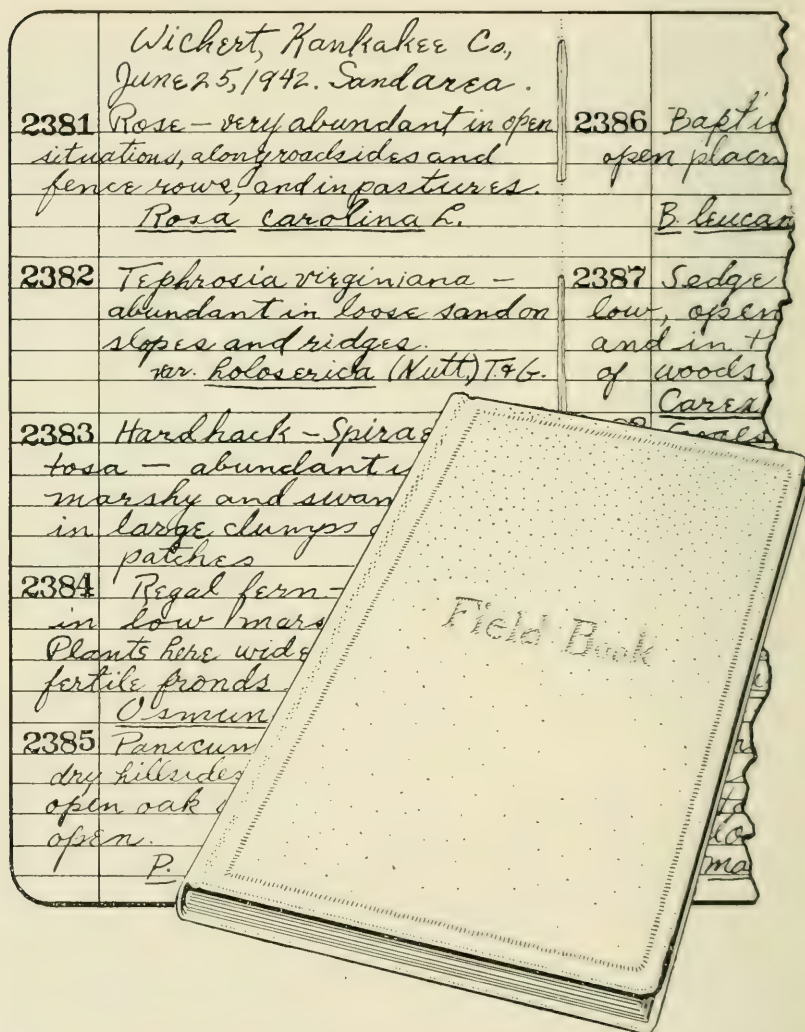 Wichert, Kankakee Co.,
June 25, 1942. Sand area.
2381 Rose – very abundant in open
situations, along roadsides and
fence rows, and in pastures.
Rosa carolina L.
2382 Tephrosia virginiana –
abundant in loose sand on
slopes and ridges.
var. holoserica (Nutt.) T. & G.
2383 Hardhack – Spirae
tosa – abundant
marshy and swam
in large clumps
patches
2384 Regal fern –
in low mars
Plants here wide
fertile fronds
Osmun
2385 Panicum
dry hillsides
open oak
open.
P.
2386 Bapti
open plac
B. leucan
2387 Sedge
low, open
and in t
of woods
Carex
ma
Field Book